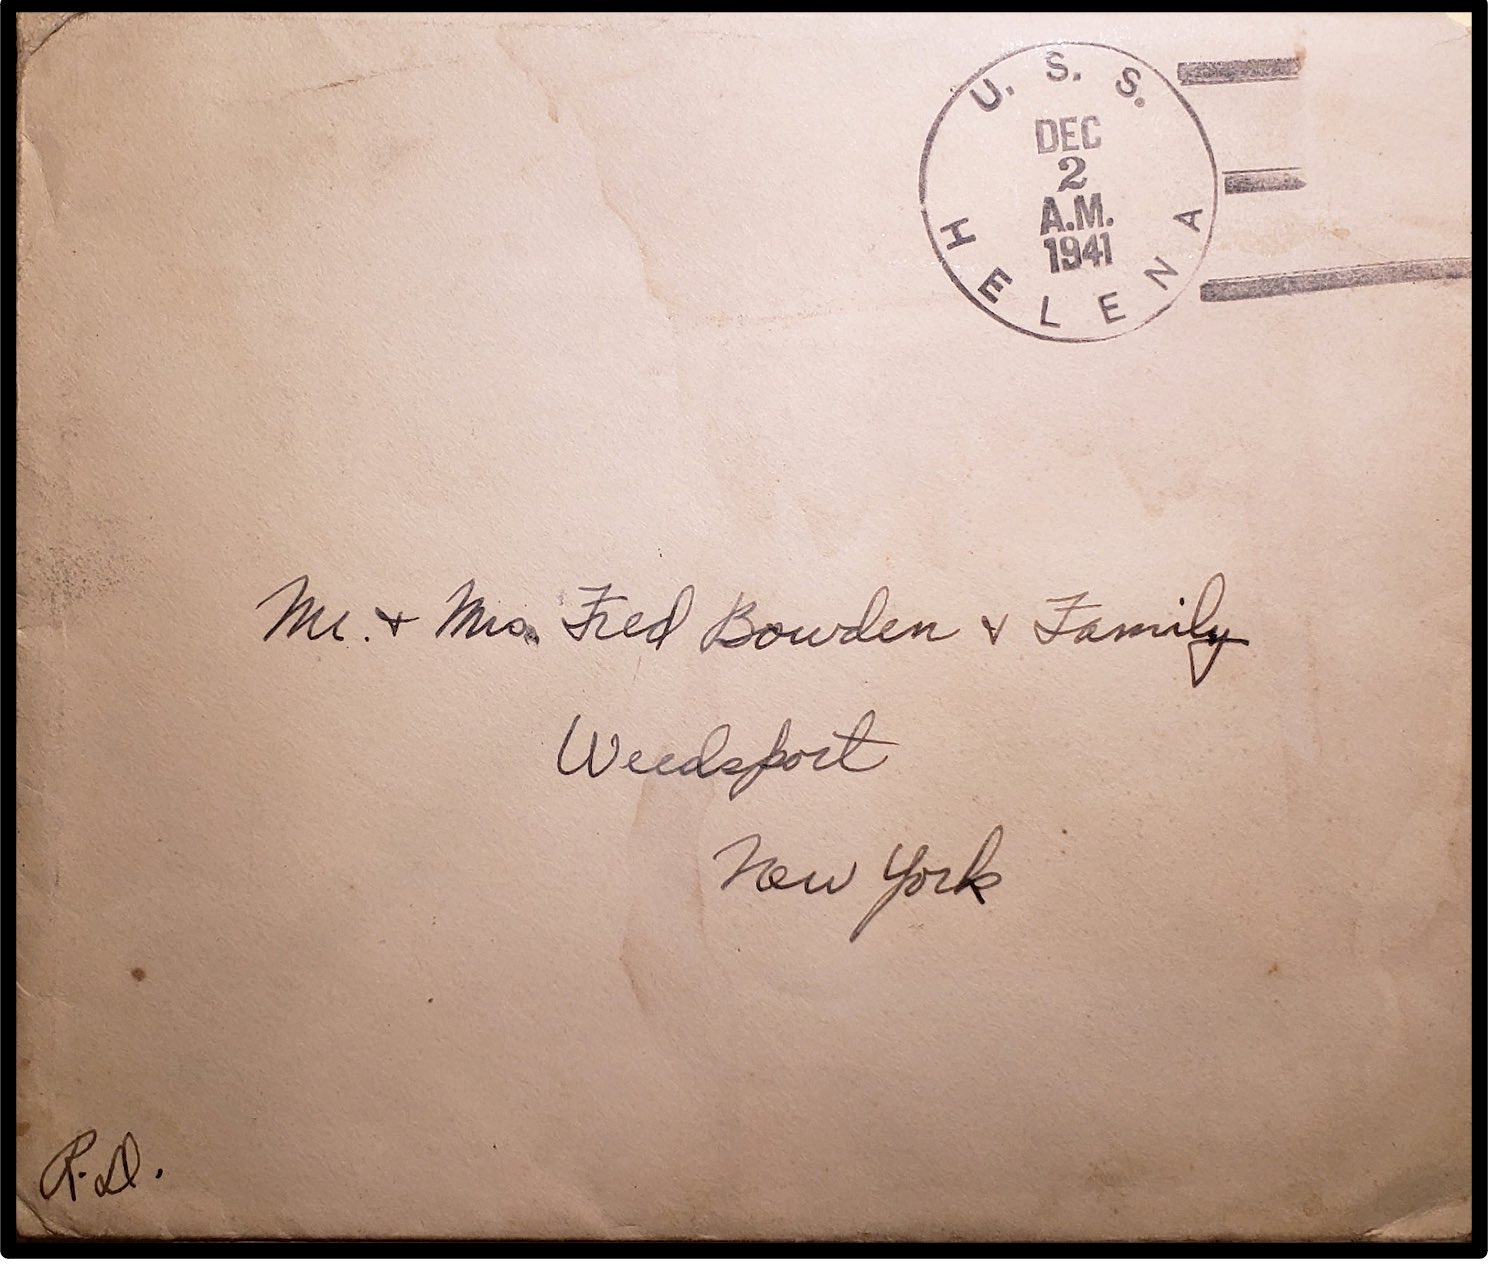 U. S. S.
DEC
2
A.M.
1941
HELENA
Mr. + Mrs. Fred Bowden & Family
Weedsport
New York
R.D.